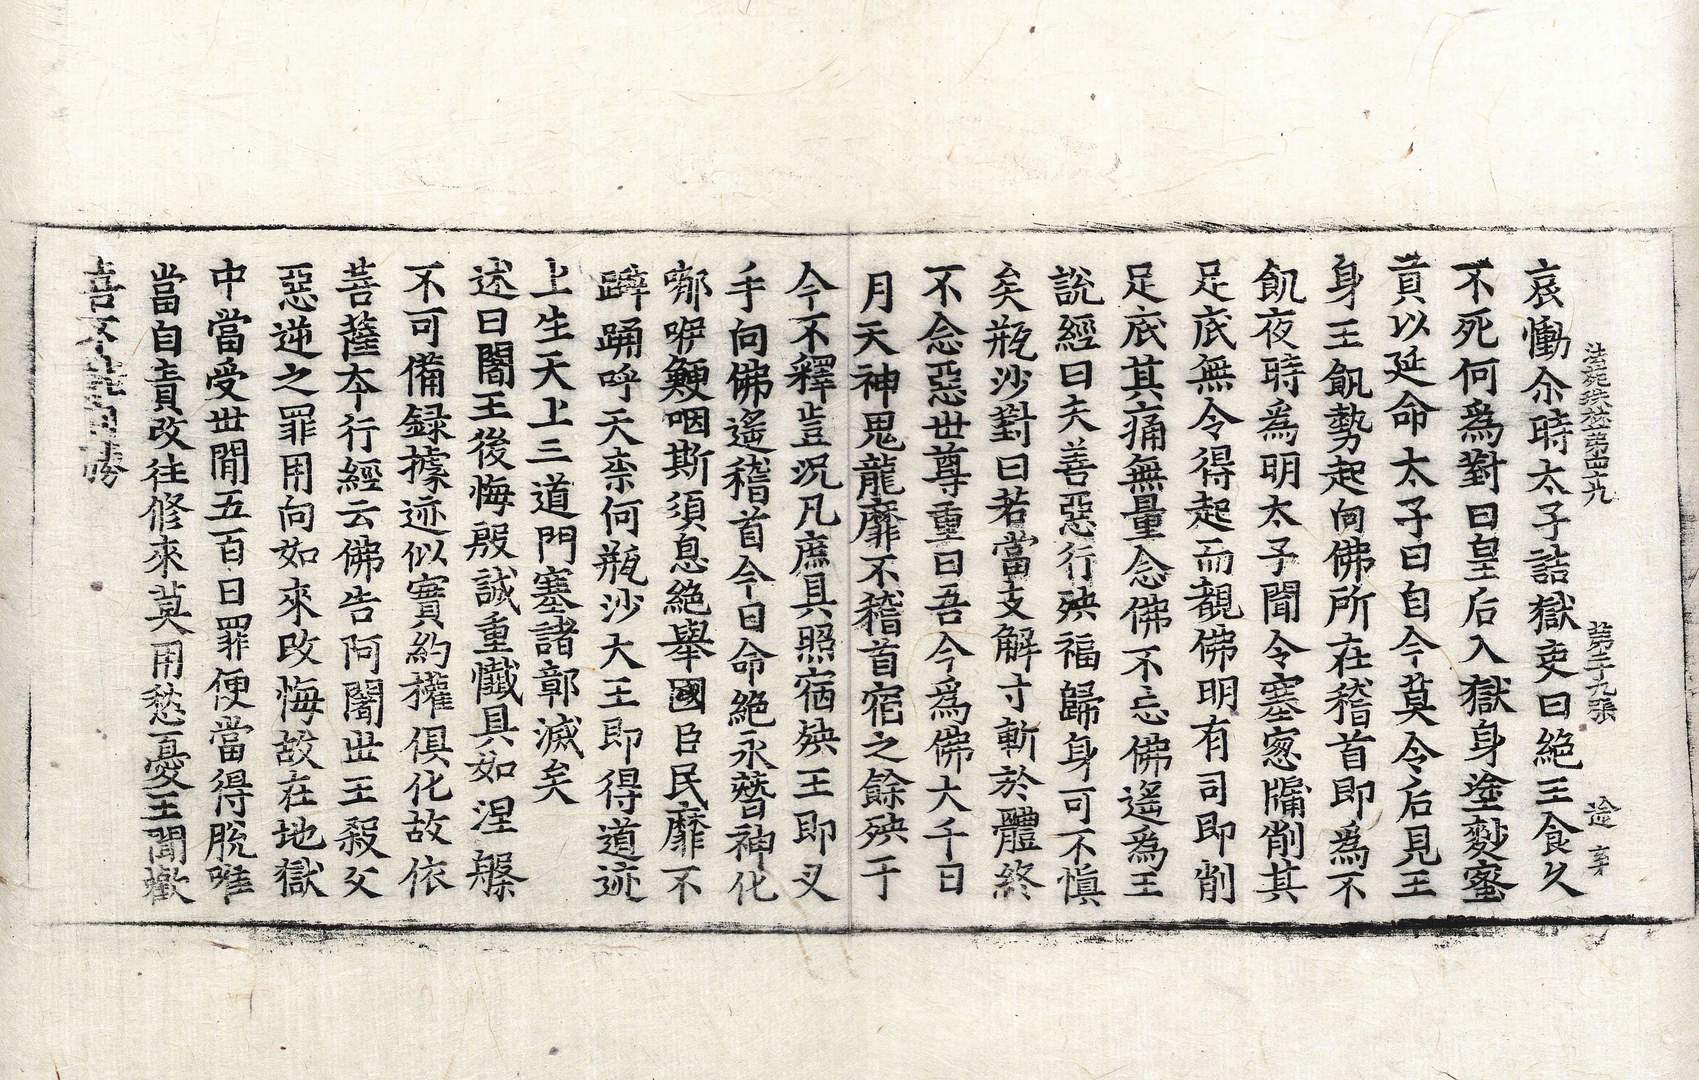 法苑珠林第四九 第二十九張 逾字
哀慟余時太子詰獄吏曰絕王食久
不死何爲對曰皇后入獄身塗麨蜜
貢以延命太子曰自今莫令后見王
身王飢勢起向佛所在稽首即爲不
飢夜時爲明太子聞令塞窓牖削其
足底無令得起而覩佛明有司即削
足底其痛無量念佛不忘佛遙爲王
說經曰夫善惡行殃福歸身可不慎
矣瓶沙對曰若當支解寸斬於體終
不念惡世尊重曰吾今爲佛大千日
月天神鬼龍靡不稽首宿之餘殃于
今不釋豈況凡庶具照宿殃王即叉
手向佛遙稽首今日命絕永替神化
哪咿鯁咽斯須息絕舉國臣民靡不
躃踊呼天柰何瓶沙大王即得道迹
上生天上三道門塞諸鄣滅矣
述曰闍王後悔殷誠重懺具如涅槃
不可備録據迹似實約權俱化故依
菩薩夲行經云佛告阿闍世王殺父
惡逆之罪用向如來改悔故在地獄
中當受世閒五百日罪便當得脫唯
當自責改往修來莫用愁憂王聞歡
喜不能自勝